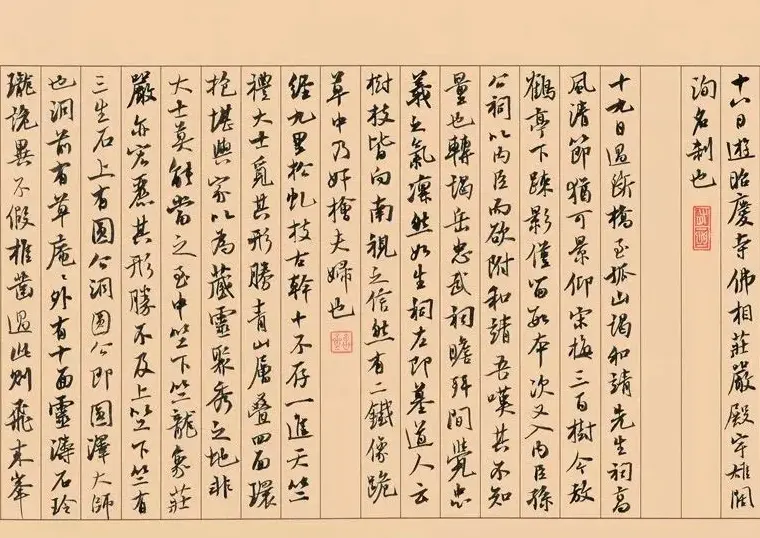 十六日遊昭慶寺佛相莊嚴殿宇雄闊
洵名刹也
十九日過斷橋至孤山謁和靖先生祠高
風清節猶可景仰宋梅三百樹今放
鶴亭下疎影僅留數本次又入內臣孫
公祠以內臣而欲附和靖吾嘆其不知
量也轉謁岳忠武祠瞻拜間覺忠
義之氣凜然如生祠左即墓道人云
樹枝皆向南視之信然有二鐵像跪
草中乃奸檜夫婦也
經九里松虬枝古幹十不存一進天竺
禮大士覓其形勝青山層疊四面環
抱堪輿家以為藏靈聚秀之地非
大士莫能當之至中竺下竺龍象莊
嚴亦宏麗其形勝不及上竺下竺有
三生石上有圓公洞圓公即圓澤大師
也洞前有草庵庵外有十面靈濤石玲
瓏詭異不假椎鑿過此則飛來峯